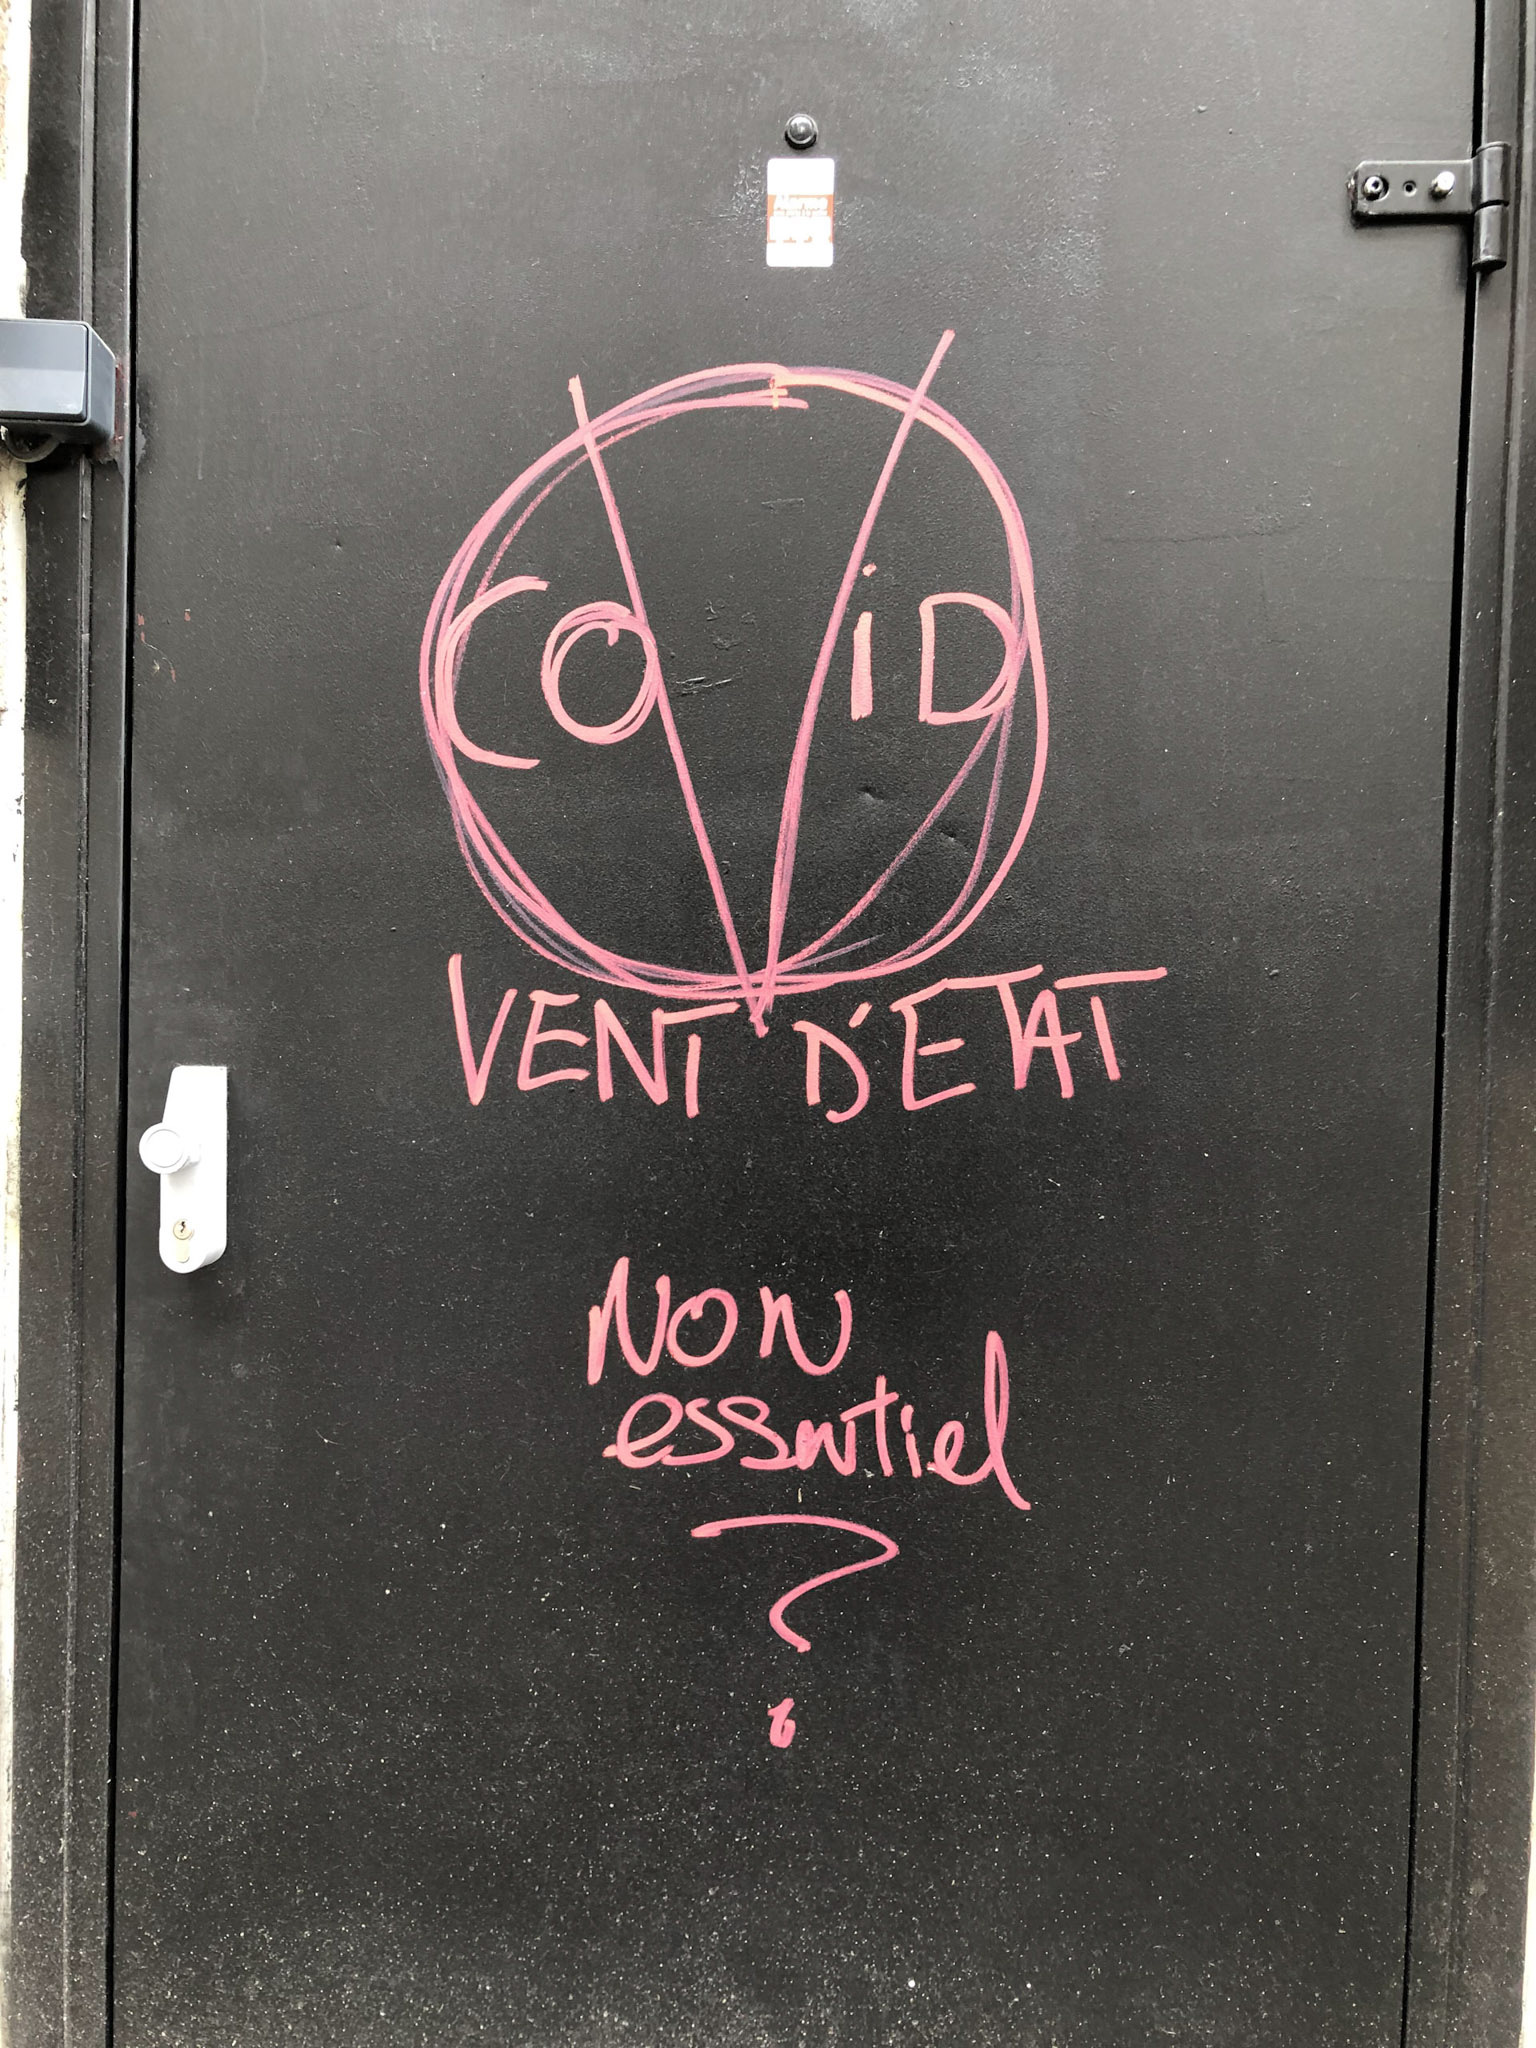 COViD
VENT D'ETAT
NON
essentiel
?